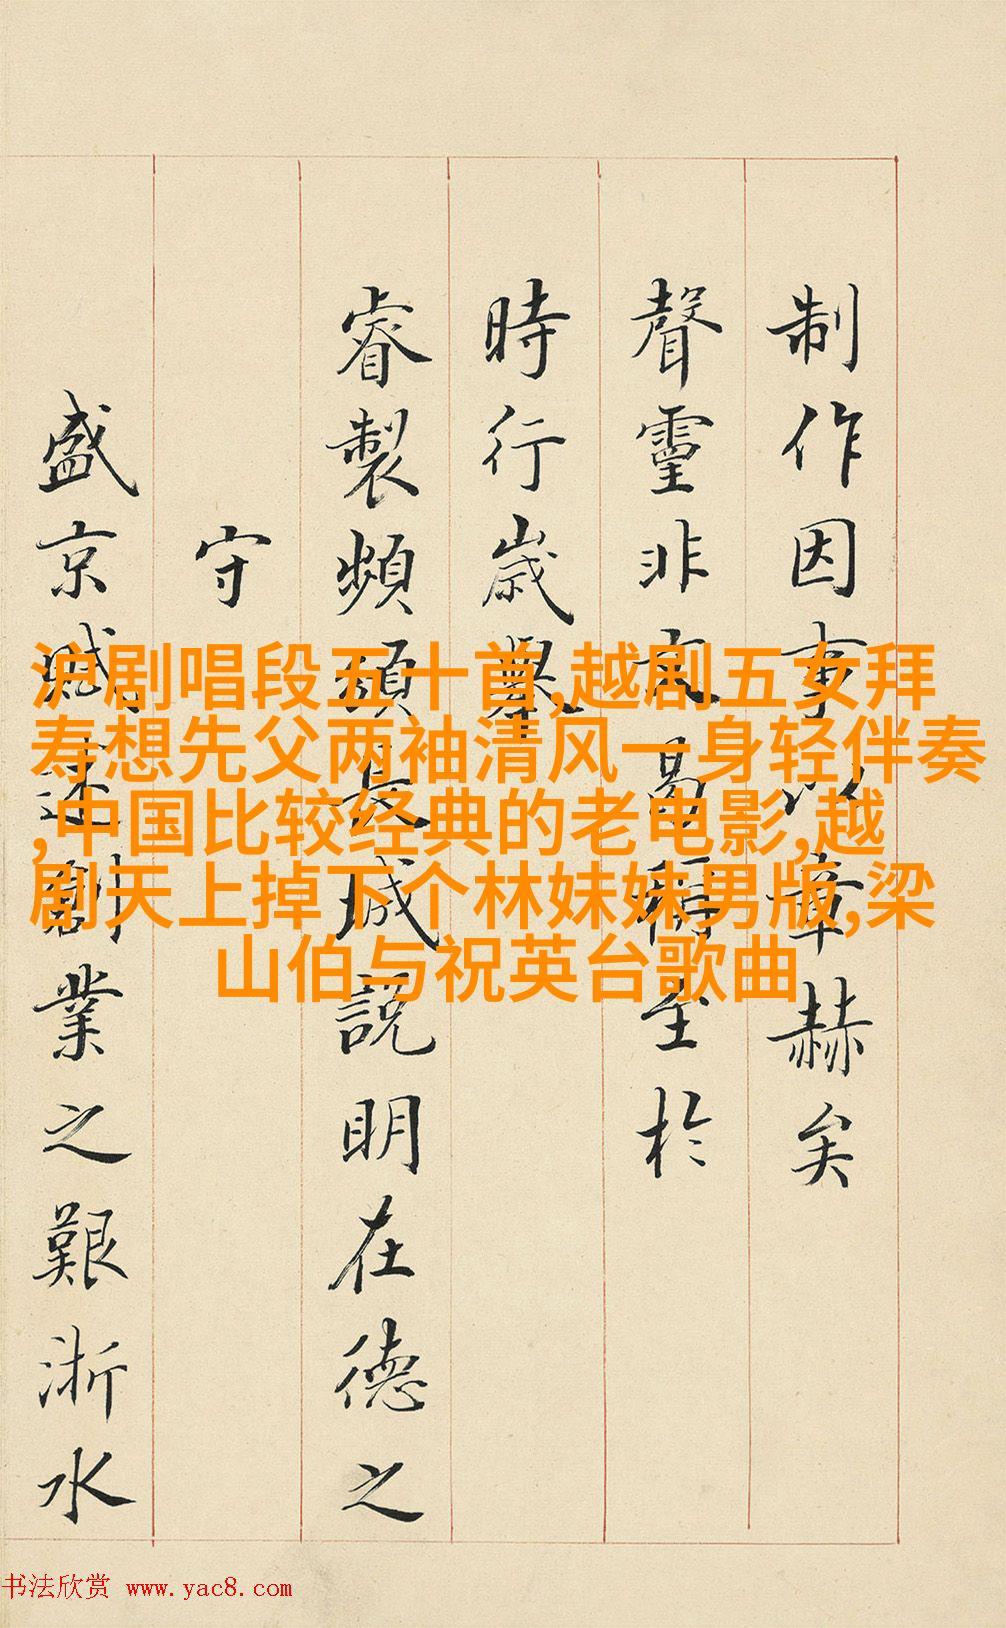 制作因事以章赫矣
聲靈非曷稱至於
時行歲舉
睿製頻頒長城説明在德之
守
盛京賦述創業之艱浙水
沪剧唱段五十首,越剧五女拜
寿想先父两袖清风一身轻伴奏
,中国比较经典的老电影,越
剧天上掉下个林妹妹男版,梁
山伯与祝英台歌曲
书法欣赏 www.yac8.com